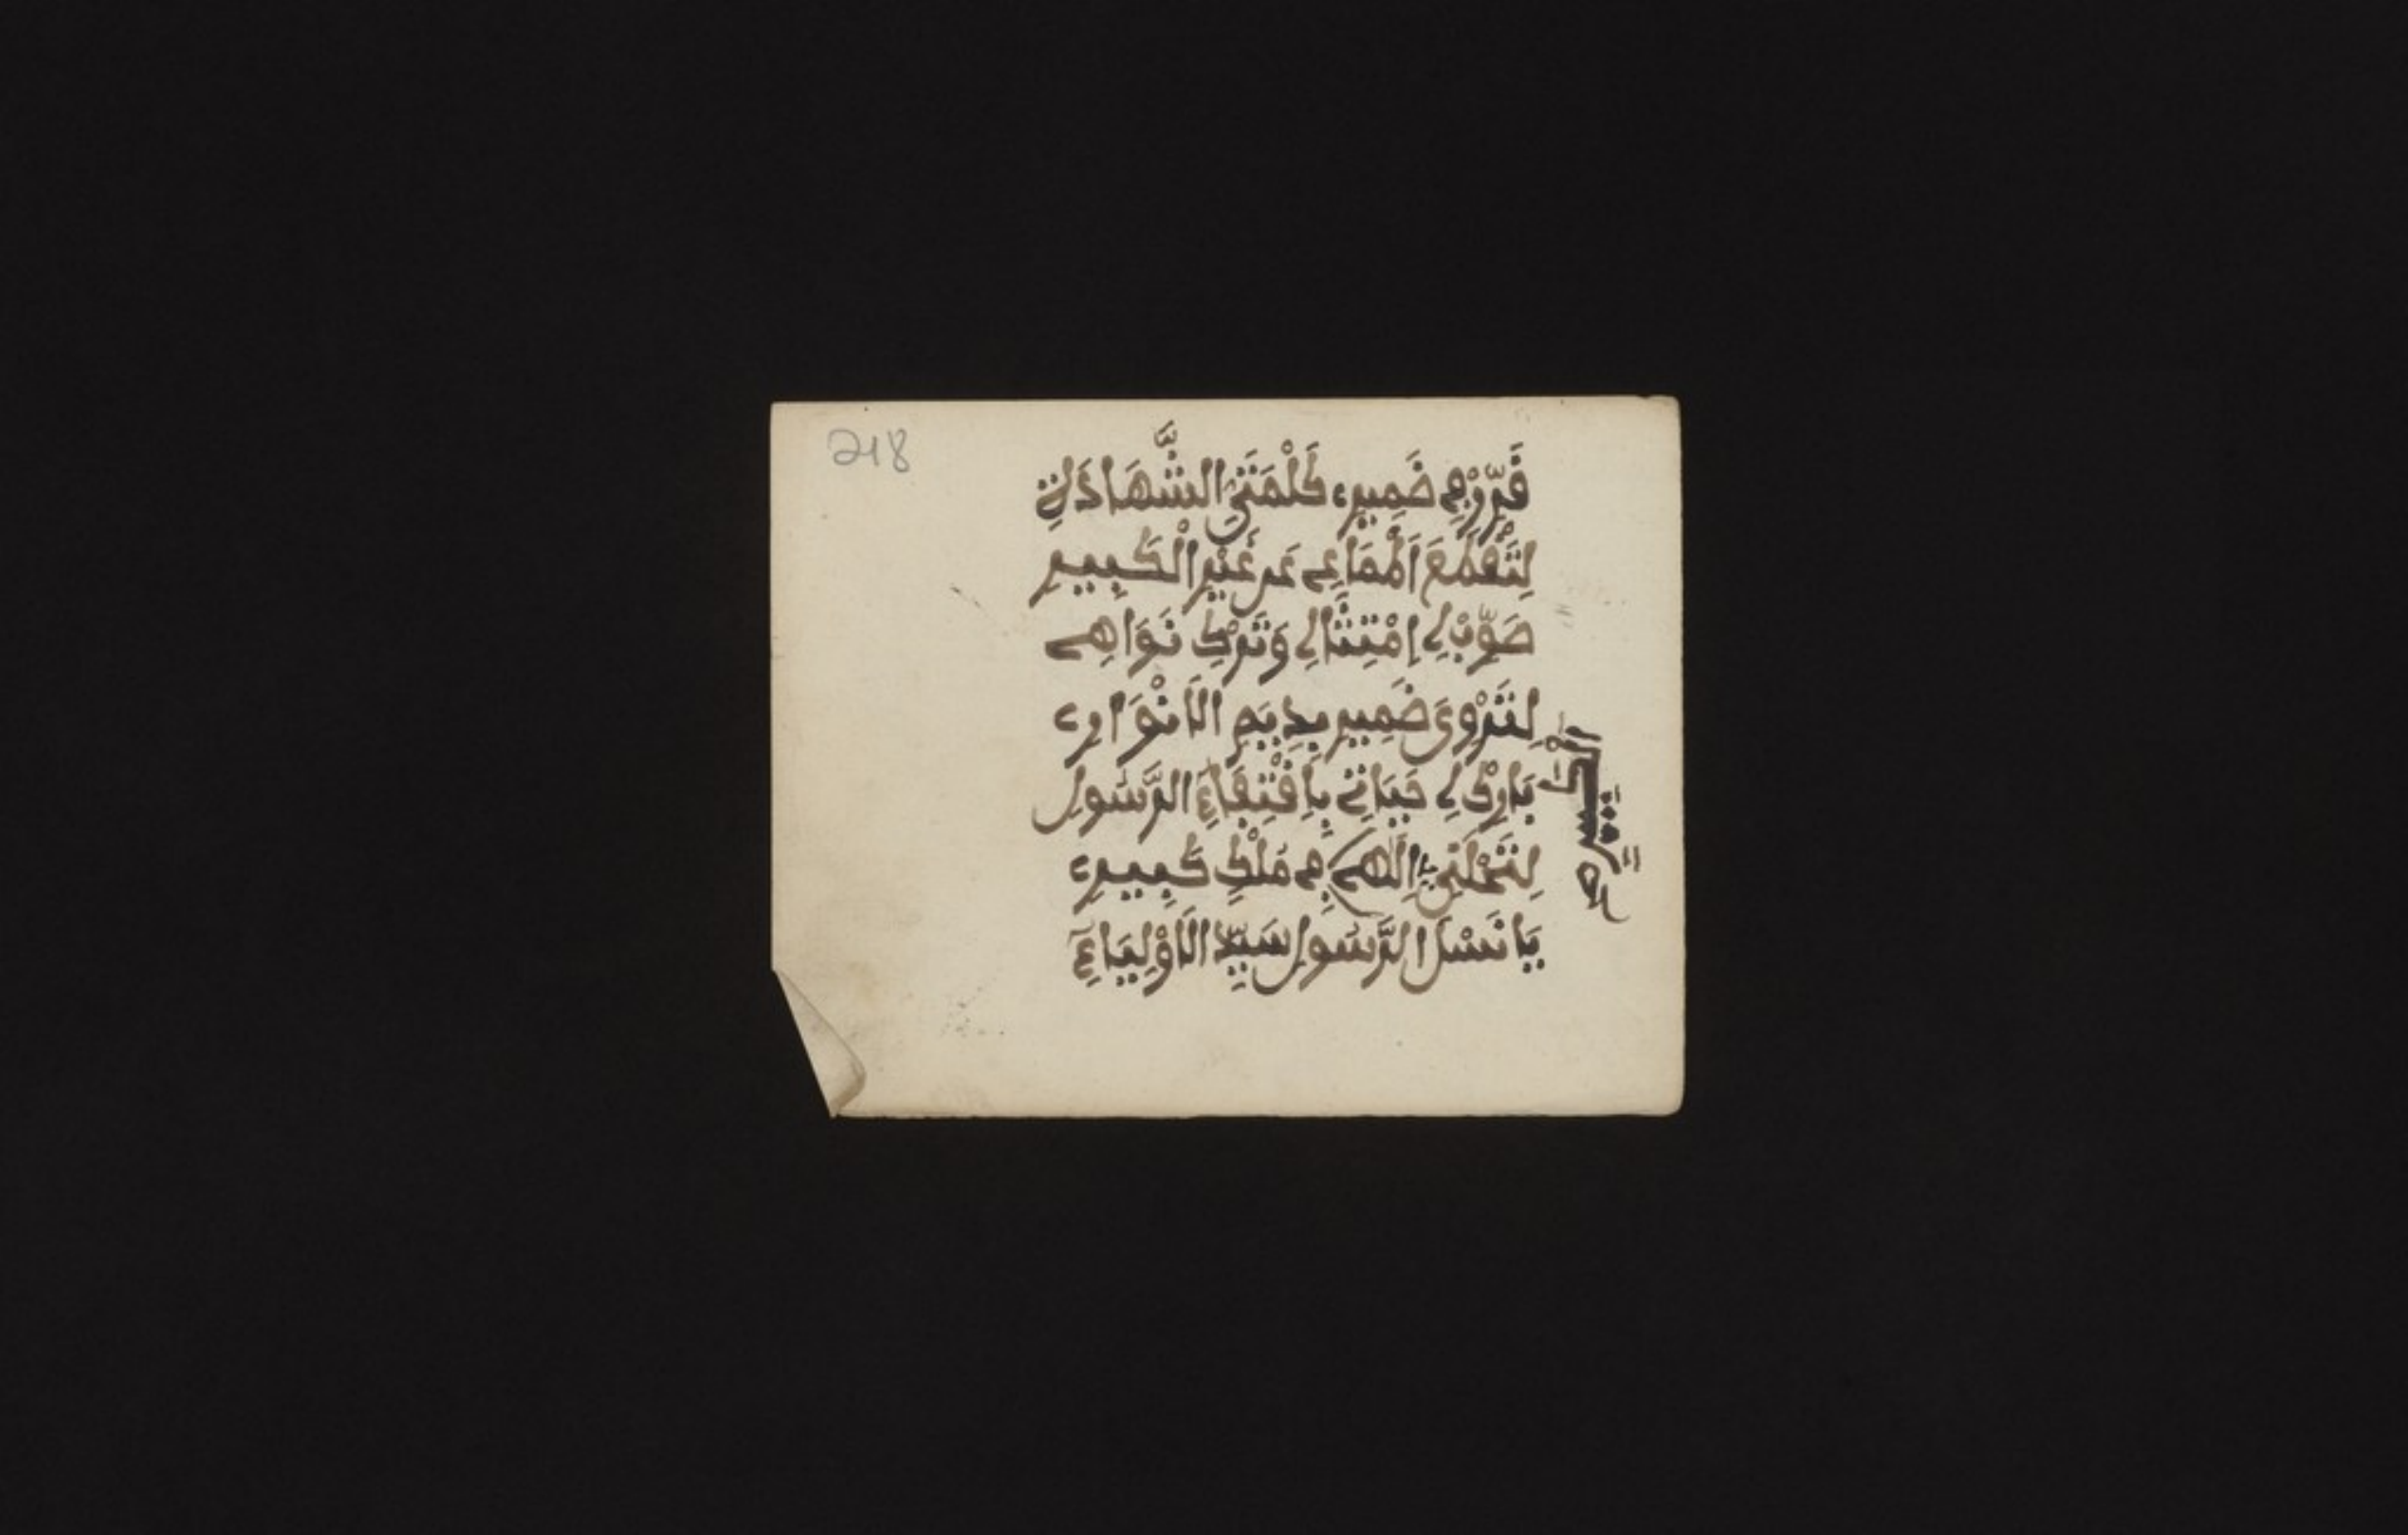 218
قَرِّرْ فِي ضَمِيرِ، كَلْمَتَيِ الشَّهَادَةِ
لِتَقْمَعَ أَطْمَاعِي عَن غَيْرِ الْكَبِيرِ
صَوِّبْ لِي اِمْتِثَالِي وَتَرْكِ نَوَاهِي
لِتَرْوِيَ ضَمِيرِ بِدِيَمِ الَانْوَارِ،
بَارِكْ لِي حَيَاتِي بِاِقْتِفَاءِ الرَّسُولِ
اِلَهِي فِي مُلْكِ كَبِيرِ،
يَا نَسْلَ الرَّسُولِ سَيِّدَ الَاوْلِيَاءِ